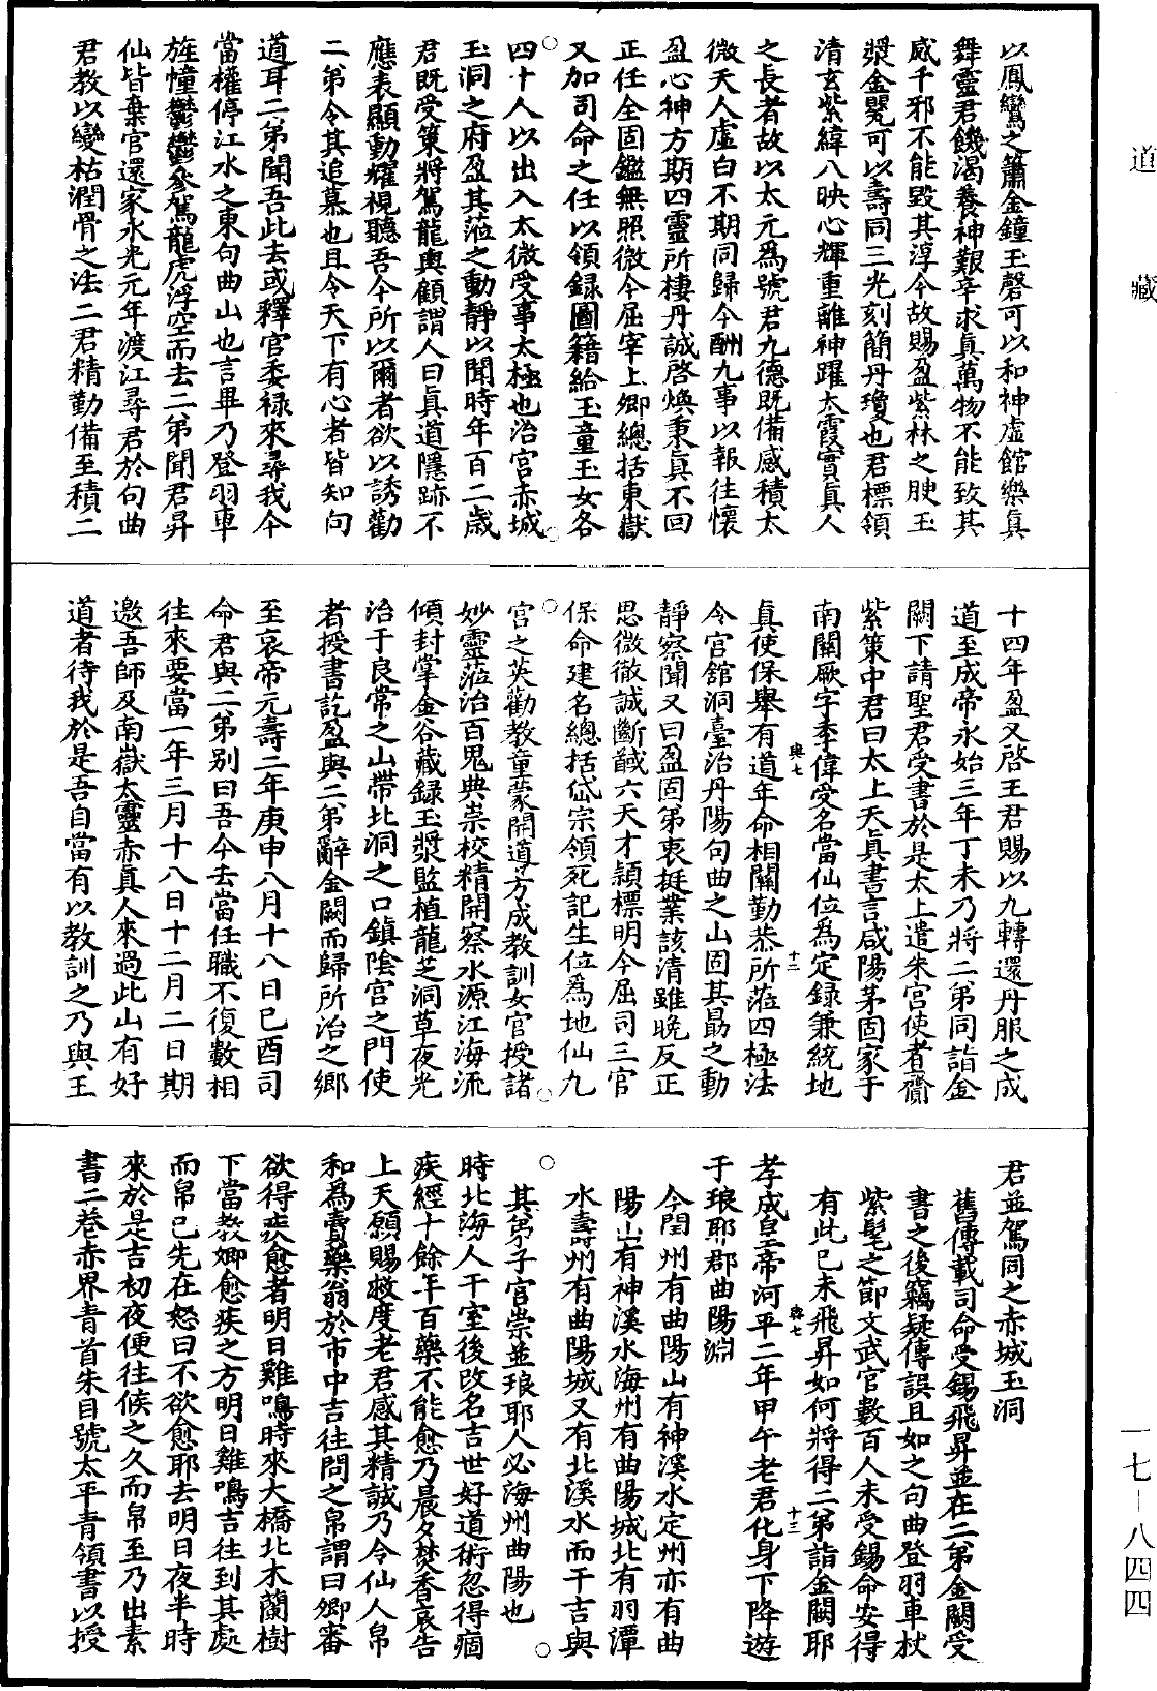 道藏
以鳳鸞之簫金鐘玉磬可以和神虛館樂真
舞靈君饑渴養神艱辛求真萬物不能致其
感千邪不能毀其淳今故賜盈紫林之腴玉
漿金甖可以壽同三光刻簡丹瓊也君標領
清玄紫緯八映心輝重離神躍太霞實真人
之長者故以太元爲號君九德既備感積太
微天人虛白不期同歸今酬九事以報往懷
盈心神方期四靈所棲丹誠啓煥秉真不回
正任全固鑑無照微今屈宰上卿總括東嶽
又加司命之任以領録圖籍給玉童玉女各
四十人以出入太微受事太極也治宮赤城
玉洞之府盈其蒞之動靜以聞時年百二歲
君既受策將駕龍輿顧謂人曰真道隱跡不
應表顯動耀視聽吾今所以爾者欲以誘勸
二弟令其追慕也且令天下有心者皆知向
道耳二弟聞吾此去或釋官委禄來尋我今
當權停江水之東句曲山也言畢乃登羽車
旌幢鬱鬱參駕龍虎浮空而去二弟聞君昇
仙皆棄官還家永光元年渡江尋君於句曲
君教以變枯潤骨之法二君精勤備至積二
十四年盈又啓王君賜以九轉還丹服之成
道至成帝永始三年丁未乃將二弟同詣金
闕下請聖君受書於是太上遣朱宮使者齎
紫策中君曰太上天真書言咸陽茅固家于
南關厥字季偉受名當仙位為定錄兼統地
真使保舉有道年命相關勤恭所蒞四極法
令宮舘洞臺治丹陽句曲之山固其勗之動
靜察聞又曰盈固弟衷挺業該清雖晚反正
思微徹誠斷馘六天才穎標明今屈司三官
保命建名總括岱宗領死記生位爲地仙九
宮之英勸教童蒙開導方成教訓女官授諸
妙靈蒞治百鬼典祟校精開察水源江海流
傾封掌金谷藏録玉漿監植龍芝洞草夜光
治于良常之山帶北洞之口鎮陰宮之門使
者授書訖盈與二弟辭金闕而歸所治之鄉
至哀帝元壽二年庚申八月十八日己酉司
命君與二弟别曰吾今去當任職不復數相
往來要當一年三月十八日十二月二日期
邀吾師及南嶽太靈赤真人來過此山有好
道者待我於是吾自當有以教訓之乃與王
君並駕同之赤城玉洞
舊傳載司命受錫飛昇並在二弟金闕受
書之後竊疑傳誤且如之句曲登羽車杖
紫髦之節文武官數百人未受錫命安得
有此已未飛昇如何將得二弟詣金闕耶
孝成皇帝河平二年甲午老君化身下降遊
于琅耶郡曲陽淵
今閏州有曲陽山有神溪水定州亦有曲
陽山有神溪水海州有曲陽城北有羽潭
水壽州有曲陽城又有北溪水而干吉與
其弟子宮崇並琅耶人必海州曲陽也
時北海人干室後改名吉世好道術忽得痼
疾經十餘年百藥不能愈乃晨夕焚香哀告
上天願賜救度老君感其精誠乃令仙人帛
和爲賣藥翁於市中吉往問之帛謂曰卿審
欲得疾愈者明日雞鳴時來大橋北木蘭樹
下當教卿愈疾之方明日雞鳴吉往到其處
而帛已先在怒曰不欲愈耶去明日夜半時
來於是吉初夜便往候之久而帛至乃出素
書二卷赤界青首朱目號太平青領書以授
與七
十二
與七
十三
一七－八四四